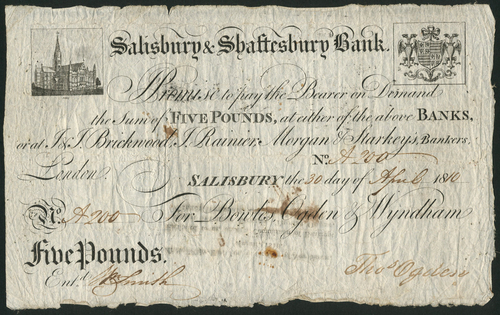 Salisbury & Shaftesbury Bank.
I Promise to pay the Bearer on Demand
the Sum of FIVE POUNDS, at either of the above BANKS,
or at J. & J. Brickwood, J. Rainier, Morgan & Starkeys, Bankers,
London.
No. A 200
SALISBURY the 30 day of April 1810.
No. A 200
For Bowles, Ogden & Wyndham
Five Pounds.
Entd. Smith
Thos. Ogden